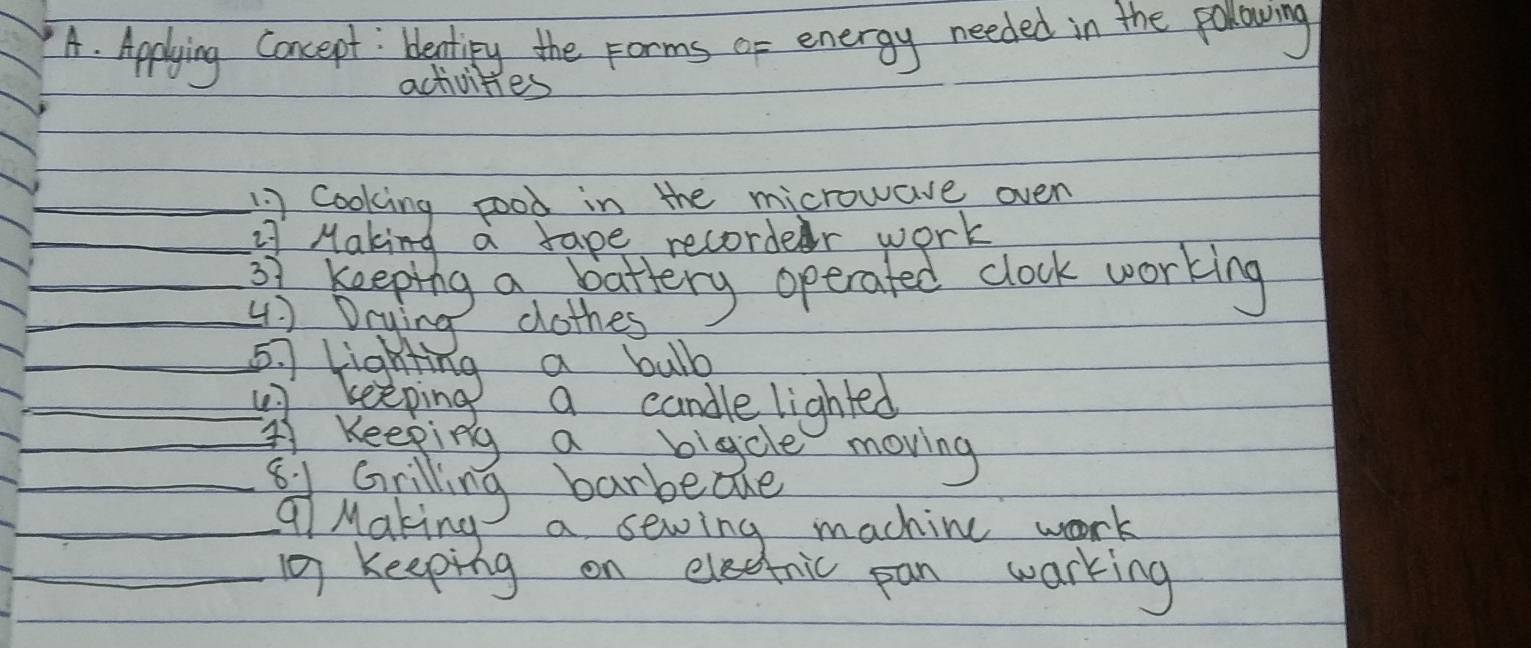 A. Applying Concept: Identify the Forms of energy needed in the following
activities
1.) Cooking food in the microwave oven
2.) Making a tape recorder work
3.) Keeping a battery operated clock working
4.) Drying clothes
5.) Lighting a bulb
6.) keeping a candle lighted
7.) Keeping a bicycle moving
8.) Grilling barbecue
9.) Making a sewing machine work
10.) Keeping on electric fan warking